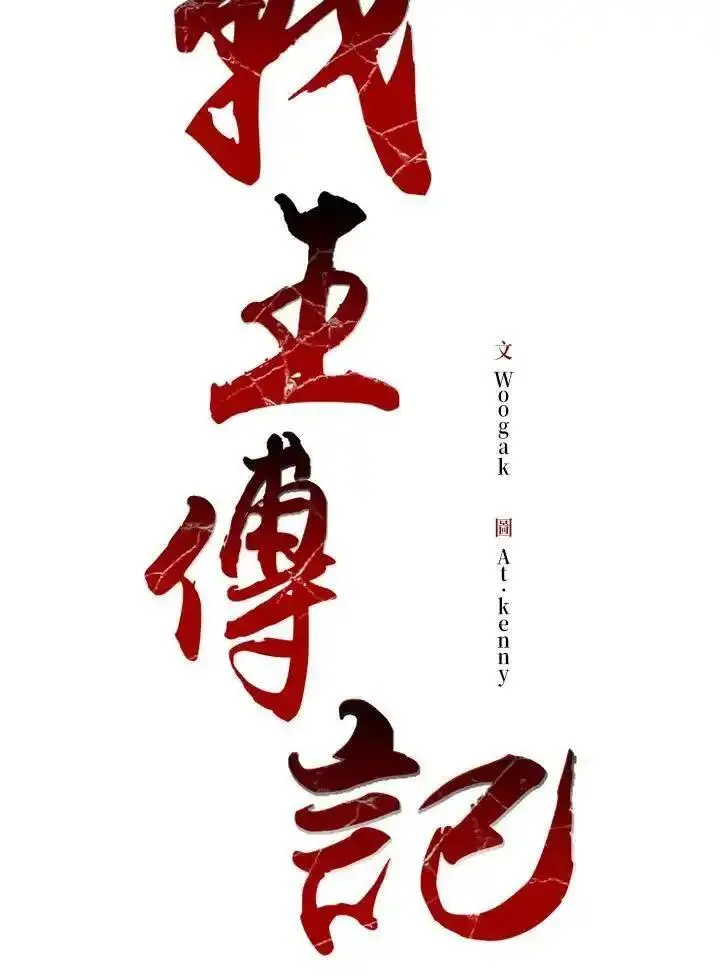 戰王傳記
文 Woogak 圖 At·kenny